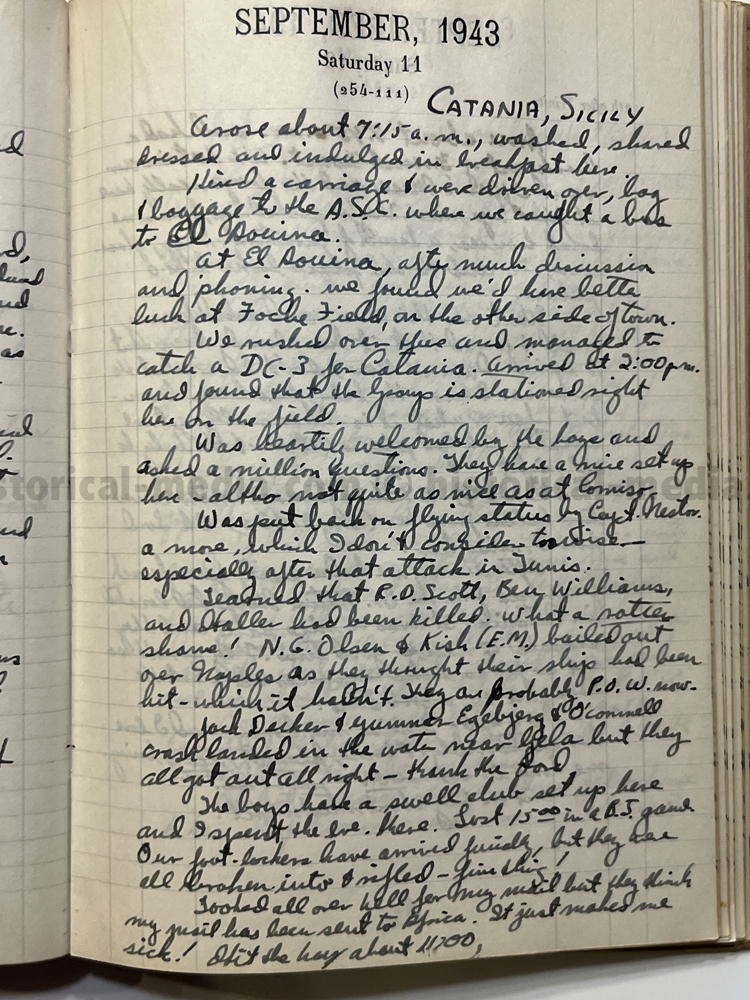 SEPTEMBER, 1943
Saturday 11
(254-111)
CATANIA, SICILY
Arose about 7:15 a.m., washed, shaved
dressed and indulged in breakfast here.
Hired a carriage & were driven over, bag
& baggage to the A.S.C. where we caught a bus
to El Aouina.
At El Aouina, after much discussion
and phoning. we found we'd have better
luck at Foche Field, on the other side of town.
We rushed over there and managed to
catch a DC-3 for Catania. Arrived at 2:00 p.m.
and found that the Group is stationed right
here on the field.
Was heartily welcomed by the boys and
asked a million questions. They have a nice set up
here - altho not quite as nice as at Comiso.
Was put back on flying status by Capt. Nestor.
a move, which I don't consider too wise -
especially after that attack in Tunis.
Learned that R.D. Scott, Ben Williams,
and Haller had been killed. What a rotten
shame! N.G. Olsen & Kish (E.M.) bailed out
over Naples as they thought their ship had been
hit - which it hadn't. They are probably P.O.W. now.
Jack Decker & gunner Egebjerg & O'Connell
crash landed in the water near Gela but they
all got out all right - thank the Lord
The boys have a swell club set up here
and I spent the eve. there. Lost 15.00 in a B.J. game.
Our foot-lockers have arrived finally, but they are
all broken into & rifled - fine thing!
Looked all over hell for my mail but they think
my mail has been sent to Africa. It just makes me
sick! Hit the hay about 11:00,